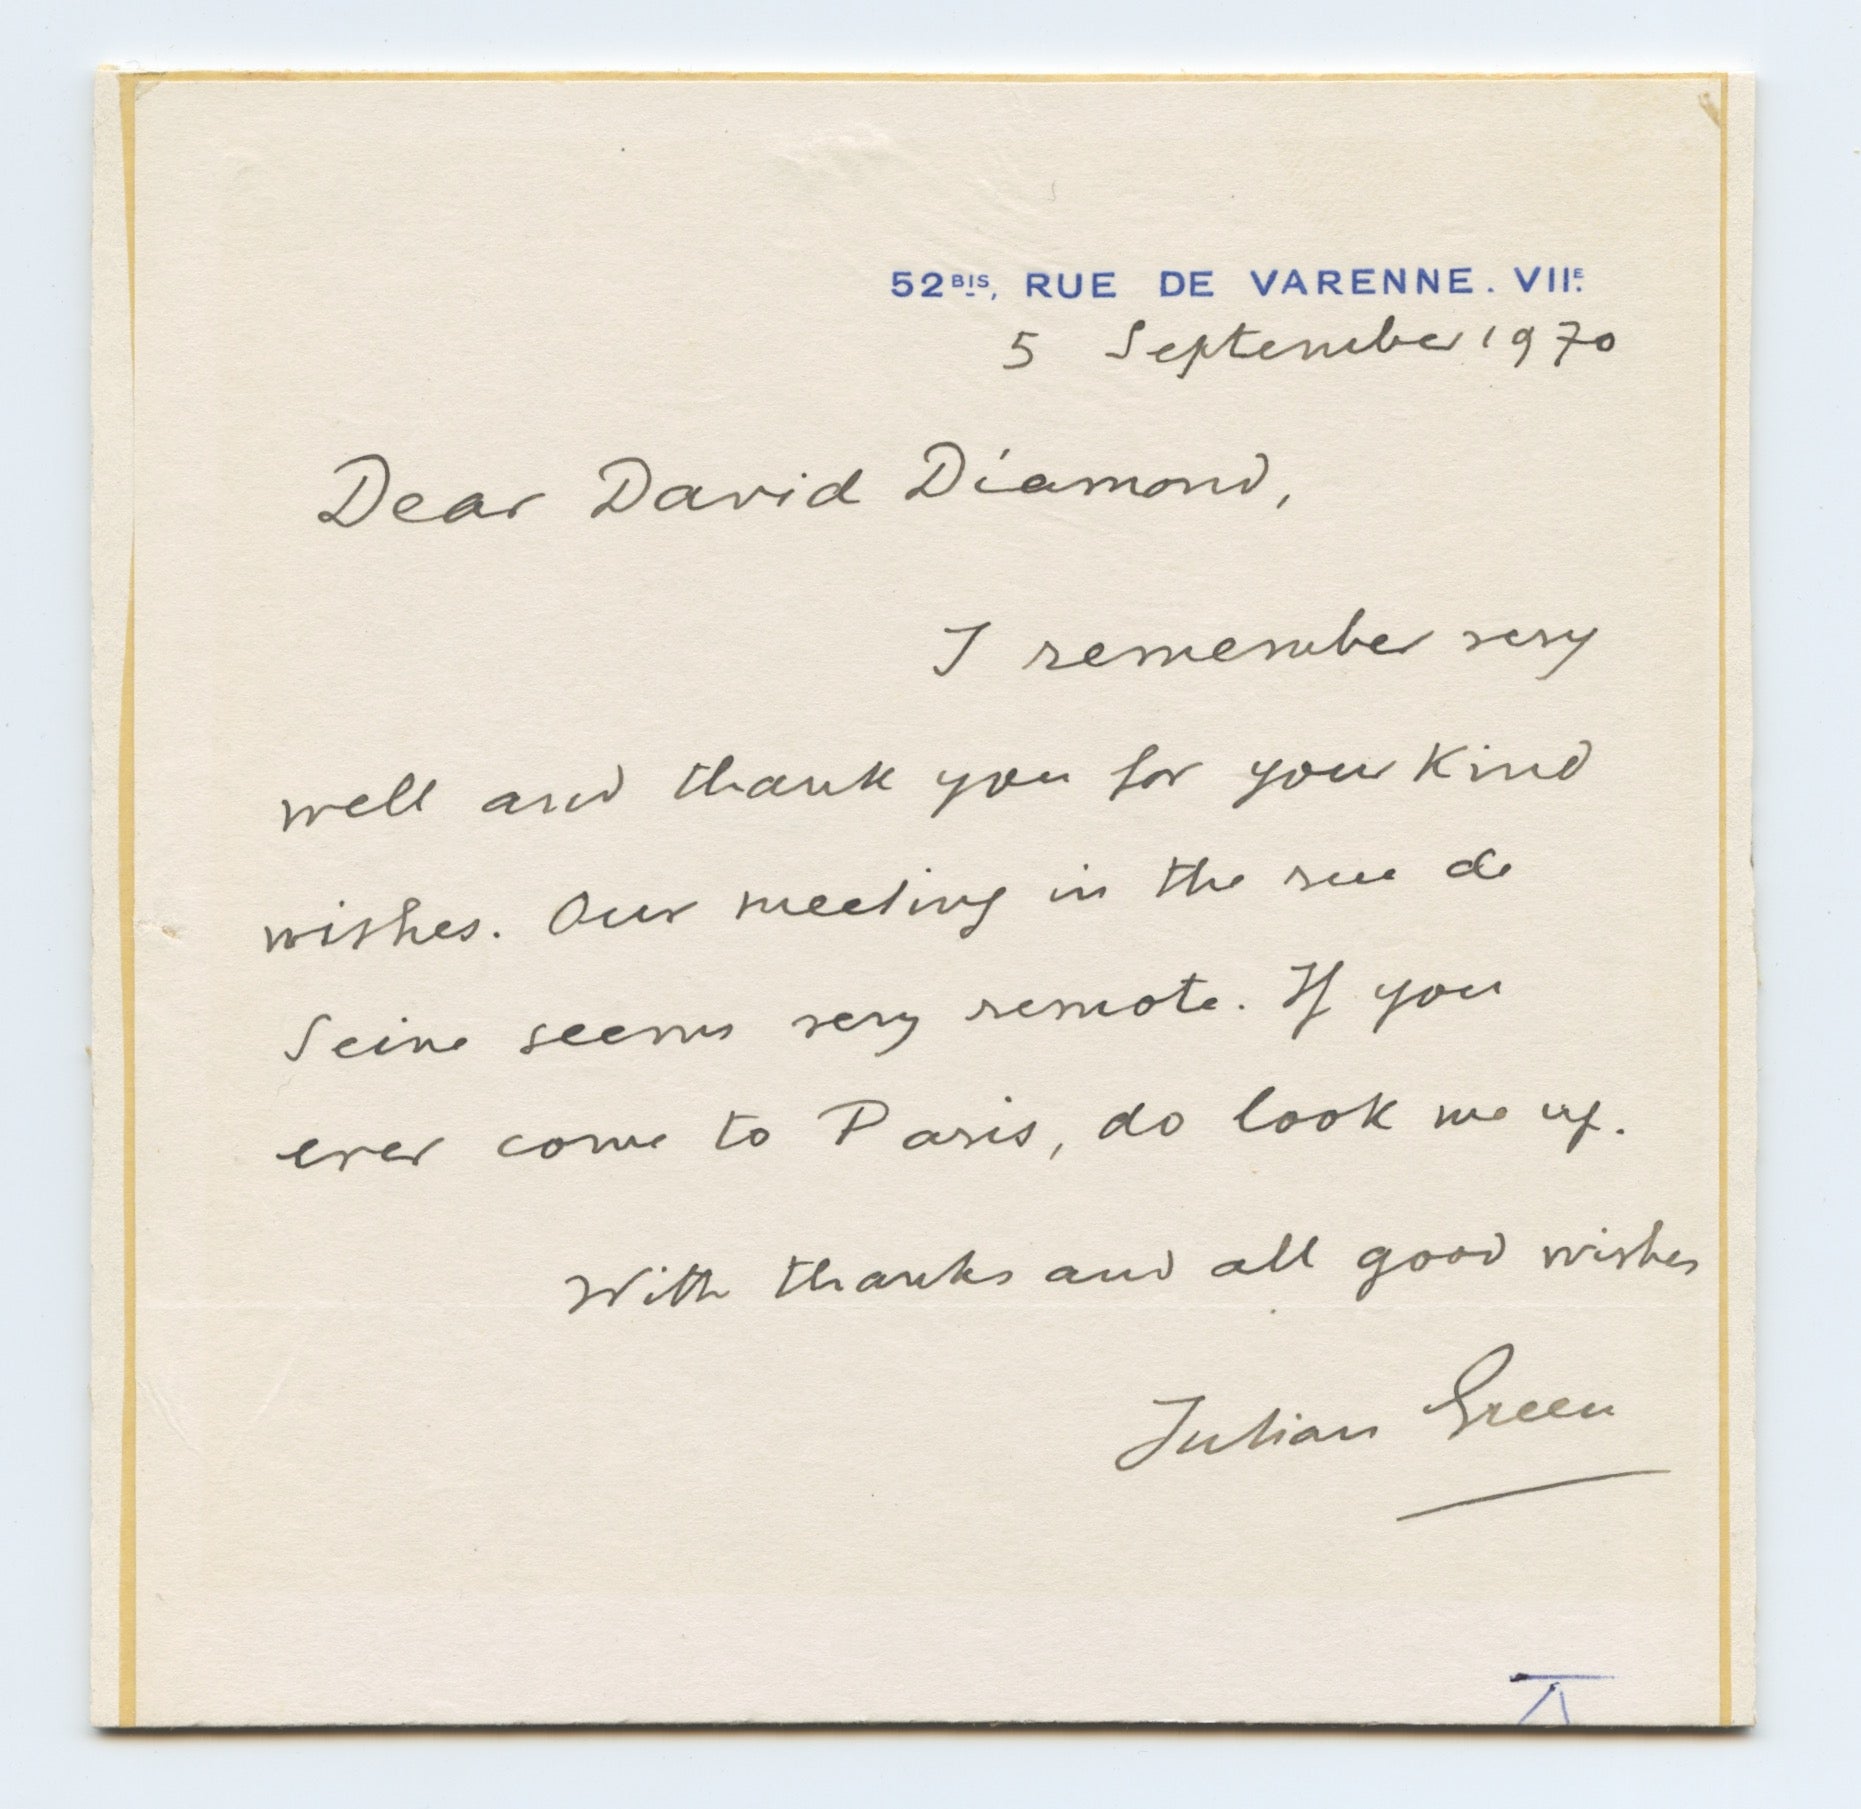 52BIS, RUE DE VARENNE. VIIE.
5 September 1970
Dear David Diamond,
I remember very
well and thank you for your kind
wishes. Our meeting in the rue de
Seine seems very remote. If you
ever come to Paris, do look me up.
With thanks and all good wishes
Julian Green